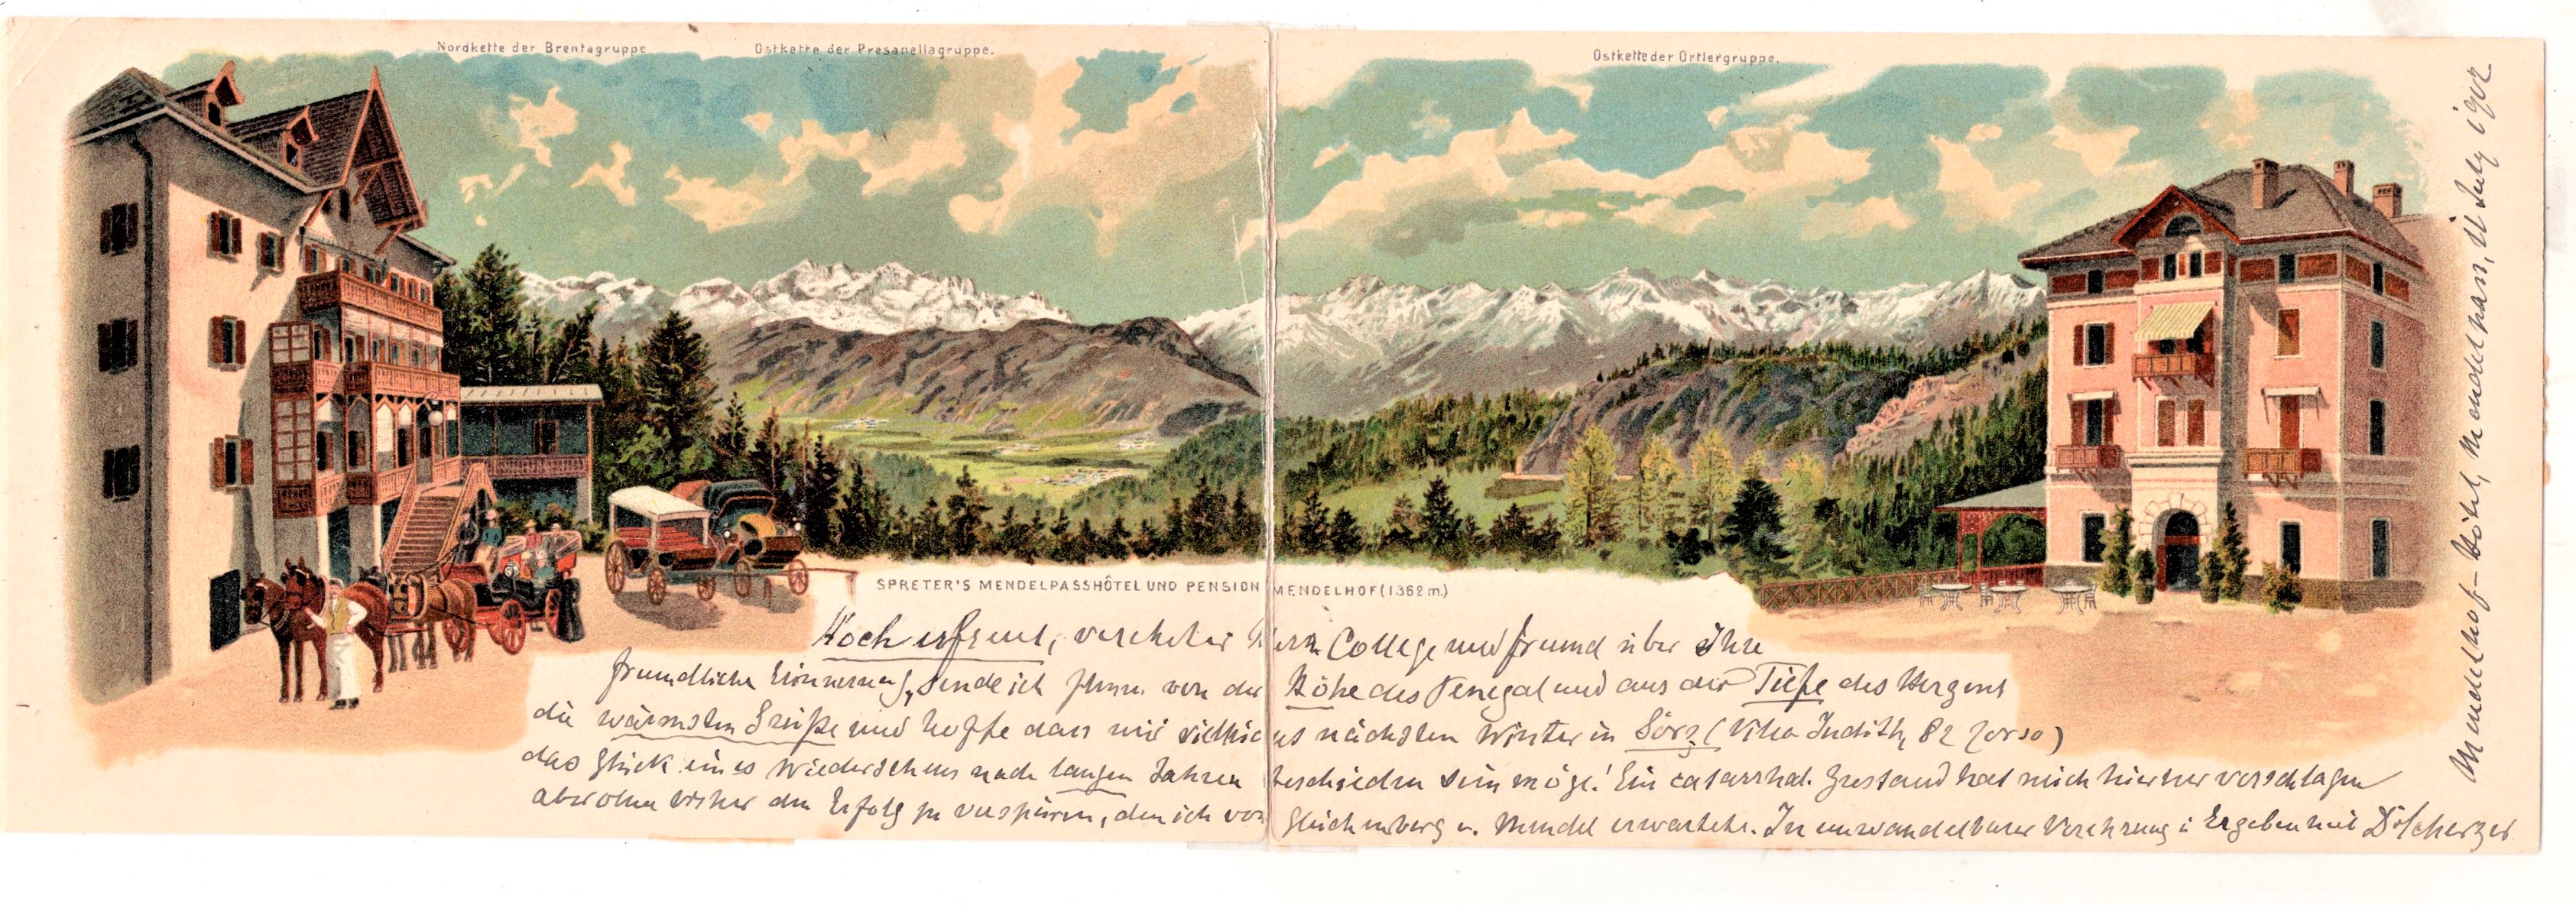 Nordkette der Brentagruppe
Ostkette der Presanellagruppe.
Ostkette der Ortlergruppe.
SPRETER'S MENDELPASSHÔTEL UND PENSION MENDELHOF (1362 m.)
Hoch erfreut, verehrter Herr College und freund über Ihre
freundliche Erinnerung, sende ich Ihnen von der Höhe des Penegal und aus der Tiefe des Herzens
die wärmsten Grüße und hoffe dass mir vielleicht nächsten Winter in Görz (Villa Judith, 82 Corso)
das Glück eines Wiedersehens nach langen Jahren beschieden sein möge! Ein catarrhal. Zustand hat mich hierher verschlagen
aber ohne bisher den Erfolg zu verspüren, den ich von Gleichenberg u. Mendel erwartete. In unwandelbarer Verehrung u Ergebenheit Dr Scherzer
Mendelhof-Hôtel, Mendelpass, July 1902